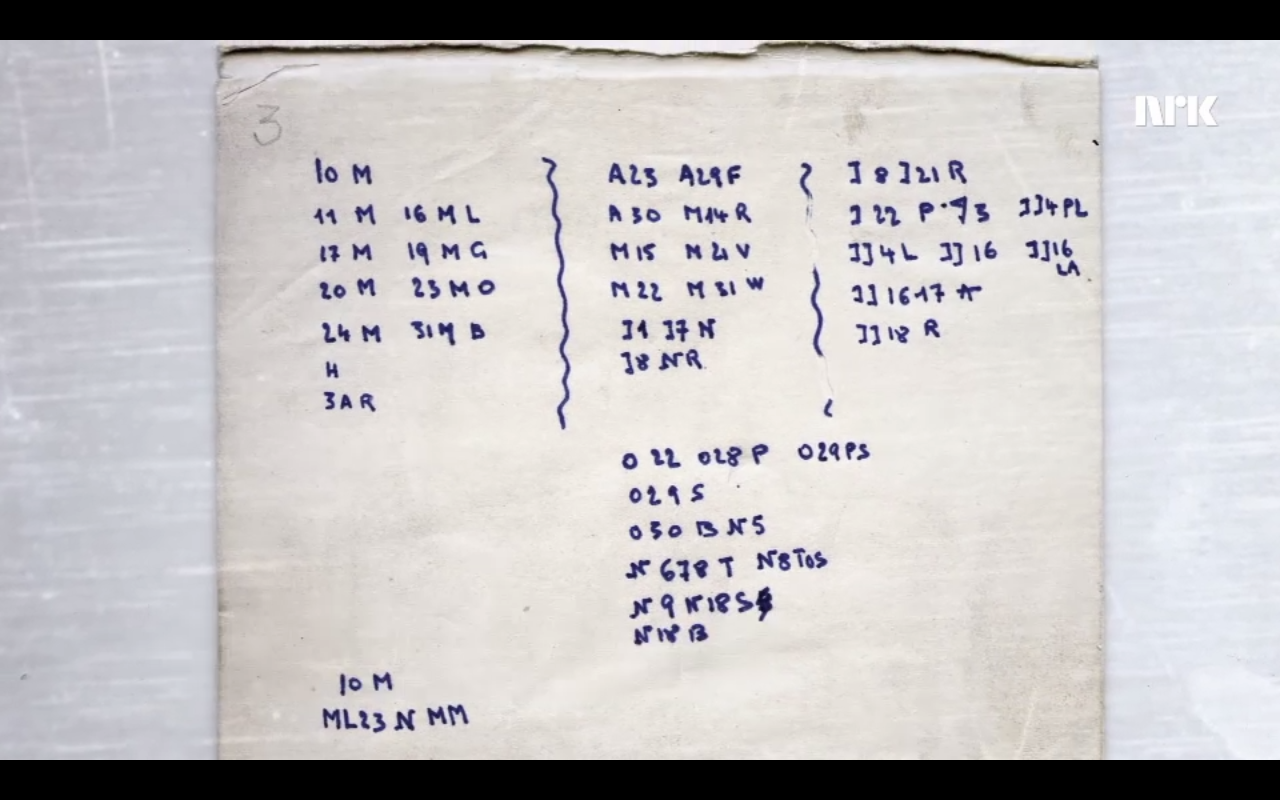 NRK
3
10 M
11 M 16 M L
17 M 19 M G
20 M 23 M O
24 M 31 M B
H
3 A R
A23 A29F
A 30 M14 R
M15 M 21 V
M22 M 31 W
J1 J7 N
J8 N R
J 8 J21 R
J 22 P
JJ4PL
JJ4 L JJ 16 JJ16
LA
JJ 16 17 A
JJ 18 R
O 22 O28 P O29PS
O29 S
O30 B N 5
N 678 T N8TOS
N 9 N18 S
N18 B
10 M
ML23 N MM